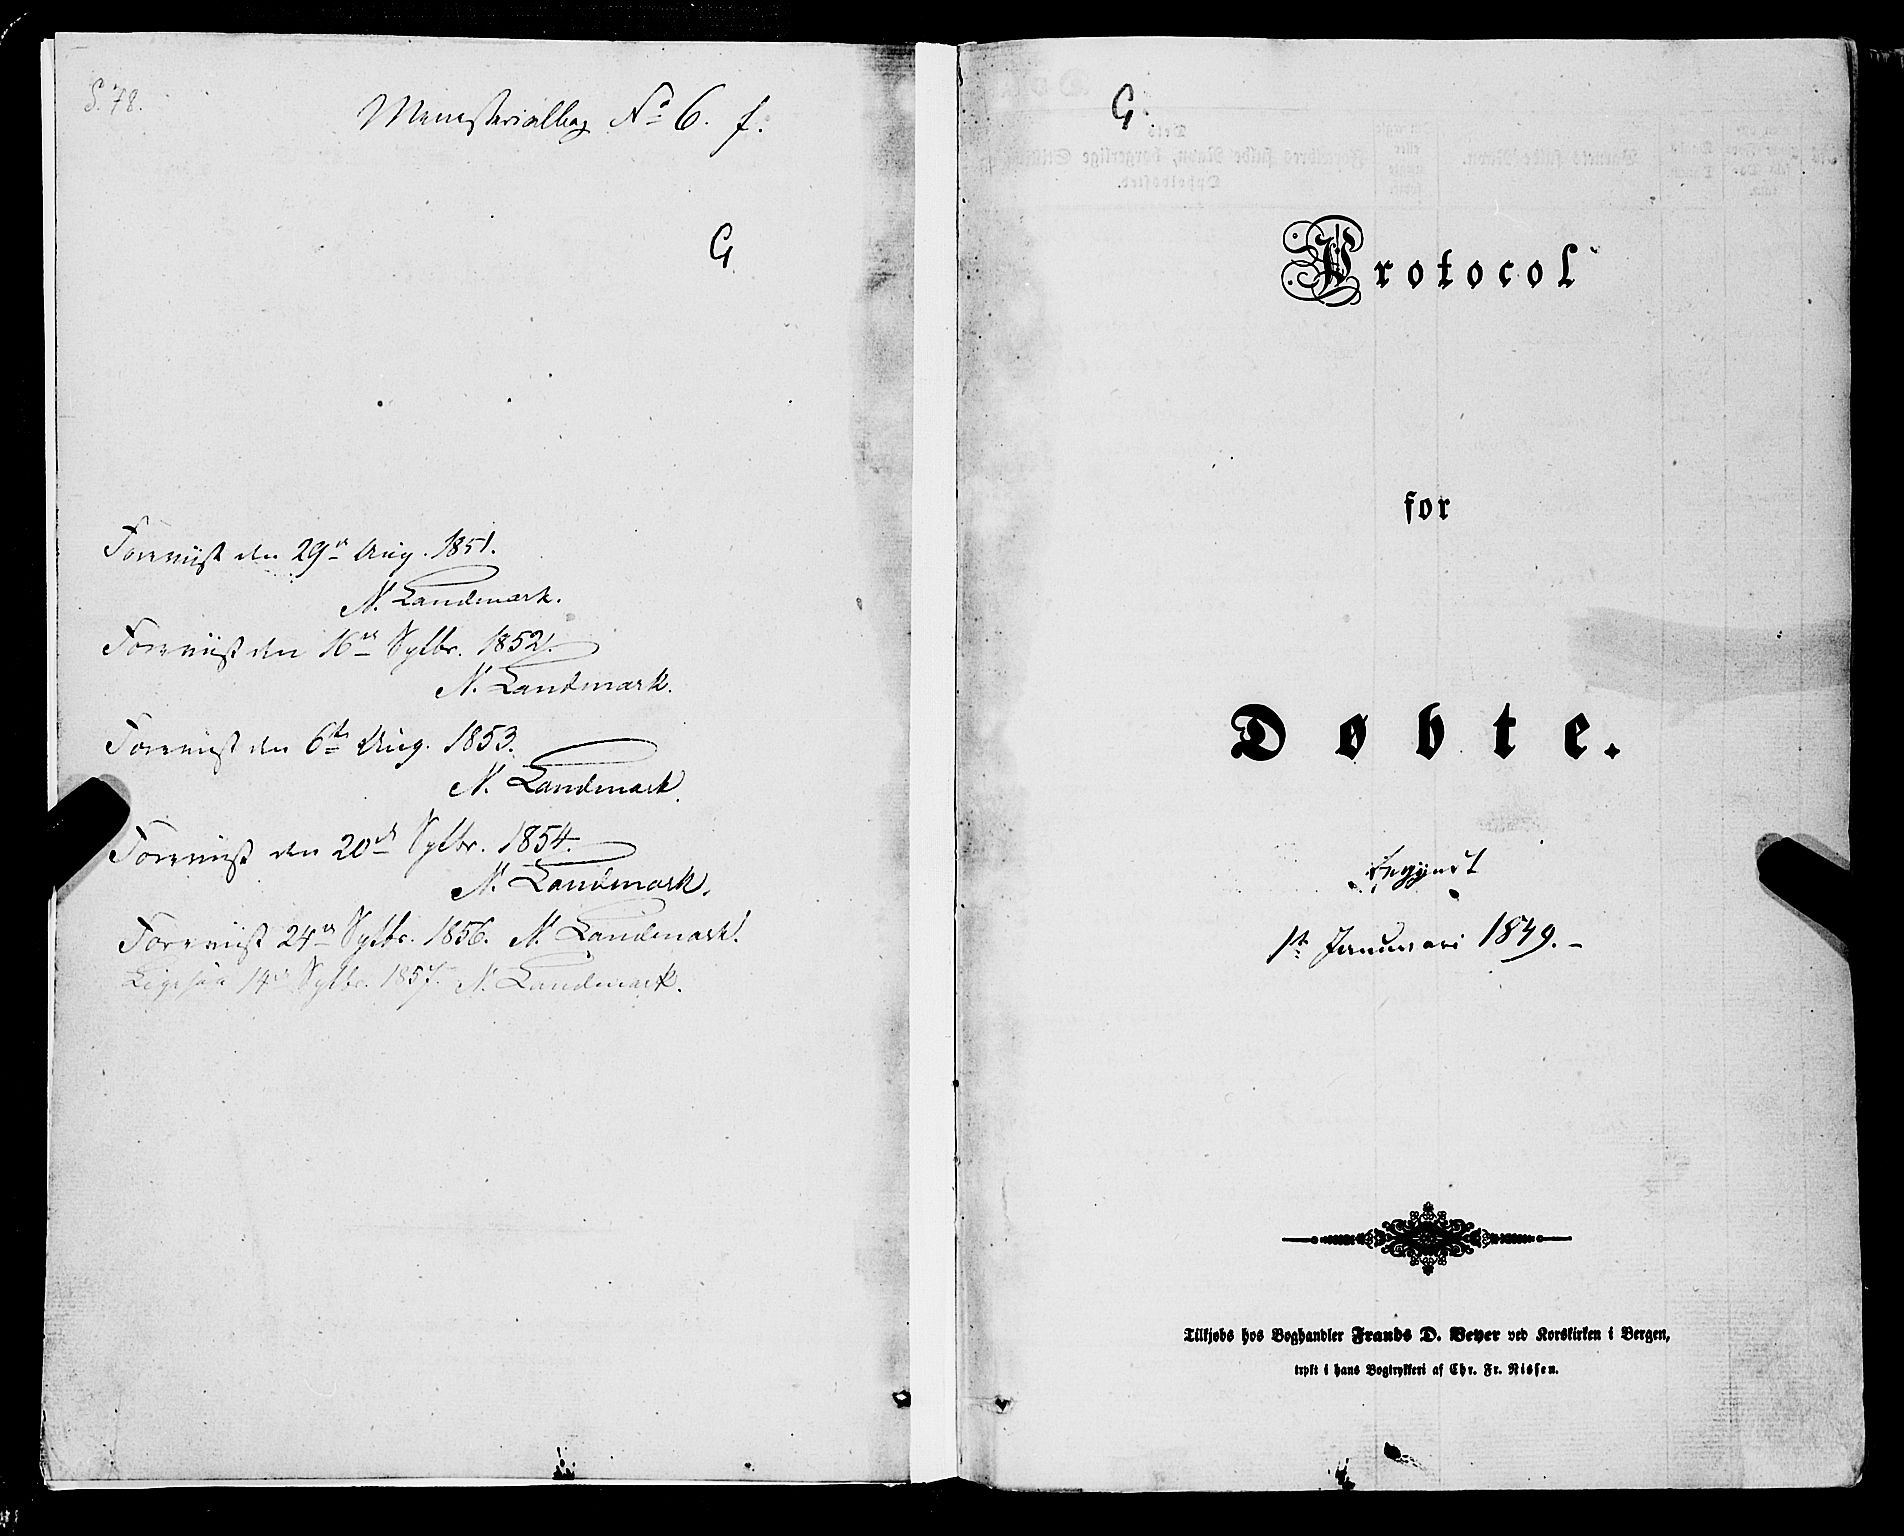 S. 78.
Ministerialbog No 6. f.
G
Foreviist den 29de Aug. 1851.
N. Landmark.
Foreviist den 16de Sptbr. 1852.
N. Landmark.
Foreviist den 6te Aug. 1853.
N. Landmark.
Foreviist den 20de Sptbr. 1854.
N. Landmark.
Foreviist 24de Sptbr. 1856. N. Landmark.
Ligesaa 14de Sptbr. 1857. N. Landmark.
G.
Protocol
for
Døbte.
begyndt
1ste Januari 1849. -
Tilkjøbs hos Boghandler Frands D. Beyer ved Korskirken i Bergen,
trykt i hans Bogtrykkeri af Chr. Fr. Nissen.